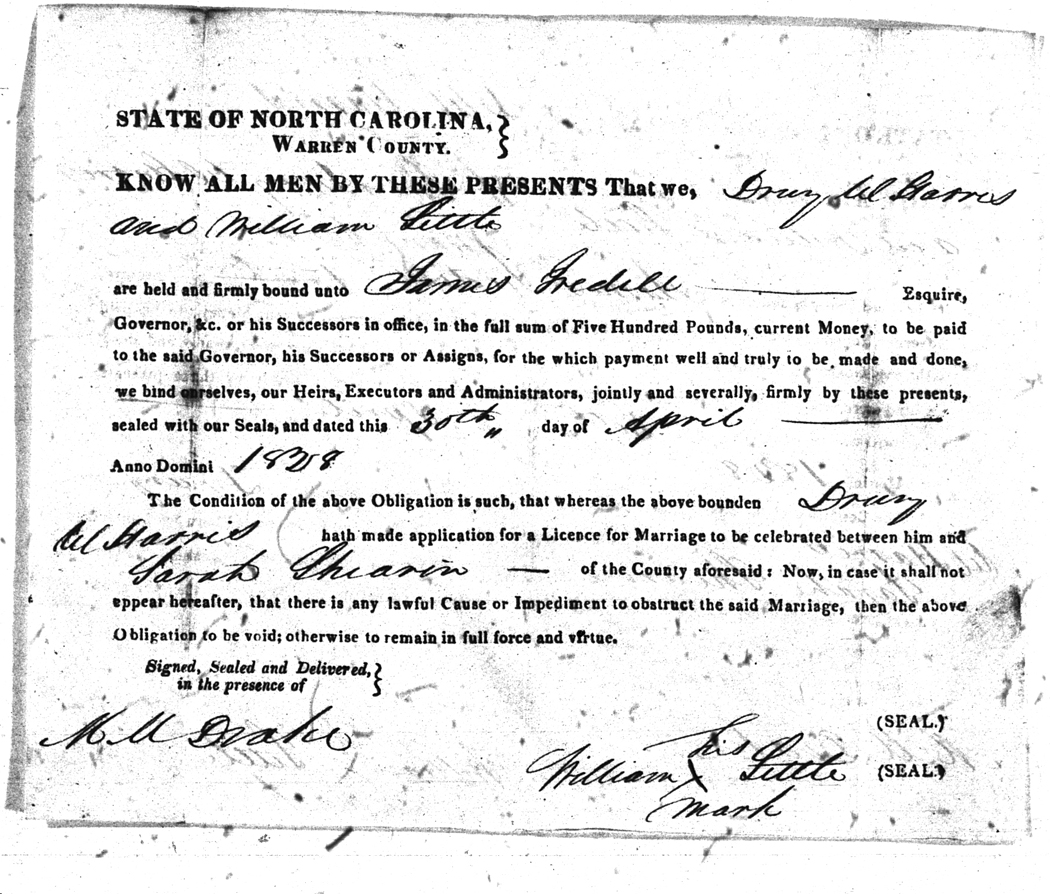 STATE OF NORTH CAROLINA,
WARREN COUNTY.
KNOW ALL MEN BY THESE PRESENTS That we, Drury W Harris
and William Little
are held and firmly bound unto James Iredell Esquire,
Governor, &c. or his Successors in office, in the full sum of Five Hundred Pounds, current Money, to be paid
to the said Governor, his Successors or Assigns, for the which payment well and truly to be made and done,
we bind ourselves, our Heirs, Executors and Administrators, jointly and severally, firmly by these presents,
sealed with our Seals, and dated this 30th day of April
Anno Domini 1828
The Condition of the above Obligation is such, that whereas the above bounden Drury
W Harris hath made application for a Licence for Marriage to be celebrated between him and
Sarah Shearin of the County aforesaid: Now, in case it shall not
appear hereafter, that there is any lawful Cause or Impediment to obstruct the said Marriage, then the above
Obligation to be void; otherwise to remain in full force and virtue.
Signed, Sealed and Delivered,
in the presence of
(SEAL.)
M M Drake
his
William X Little (SEAL.)
mark